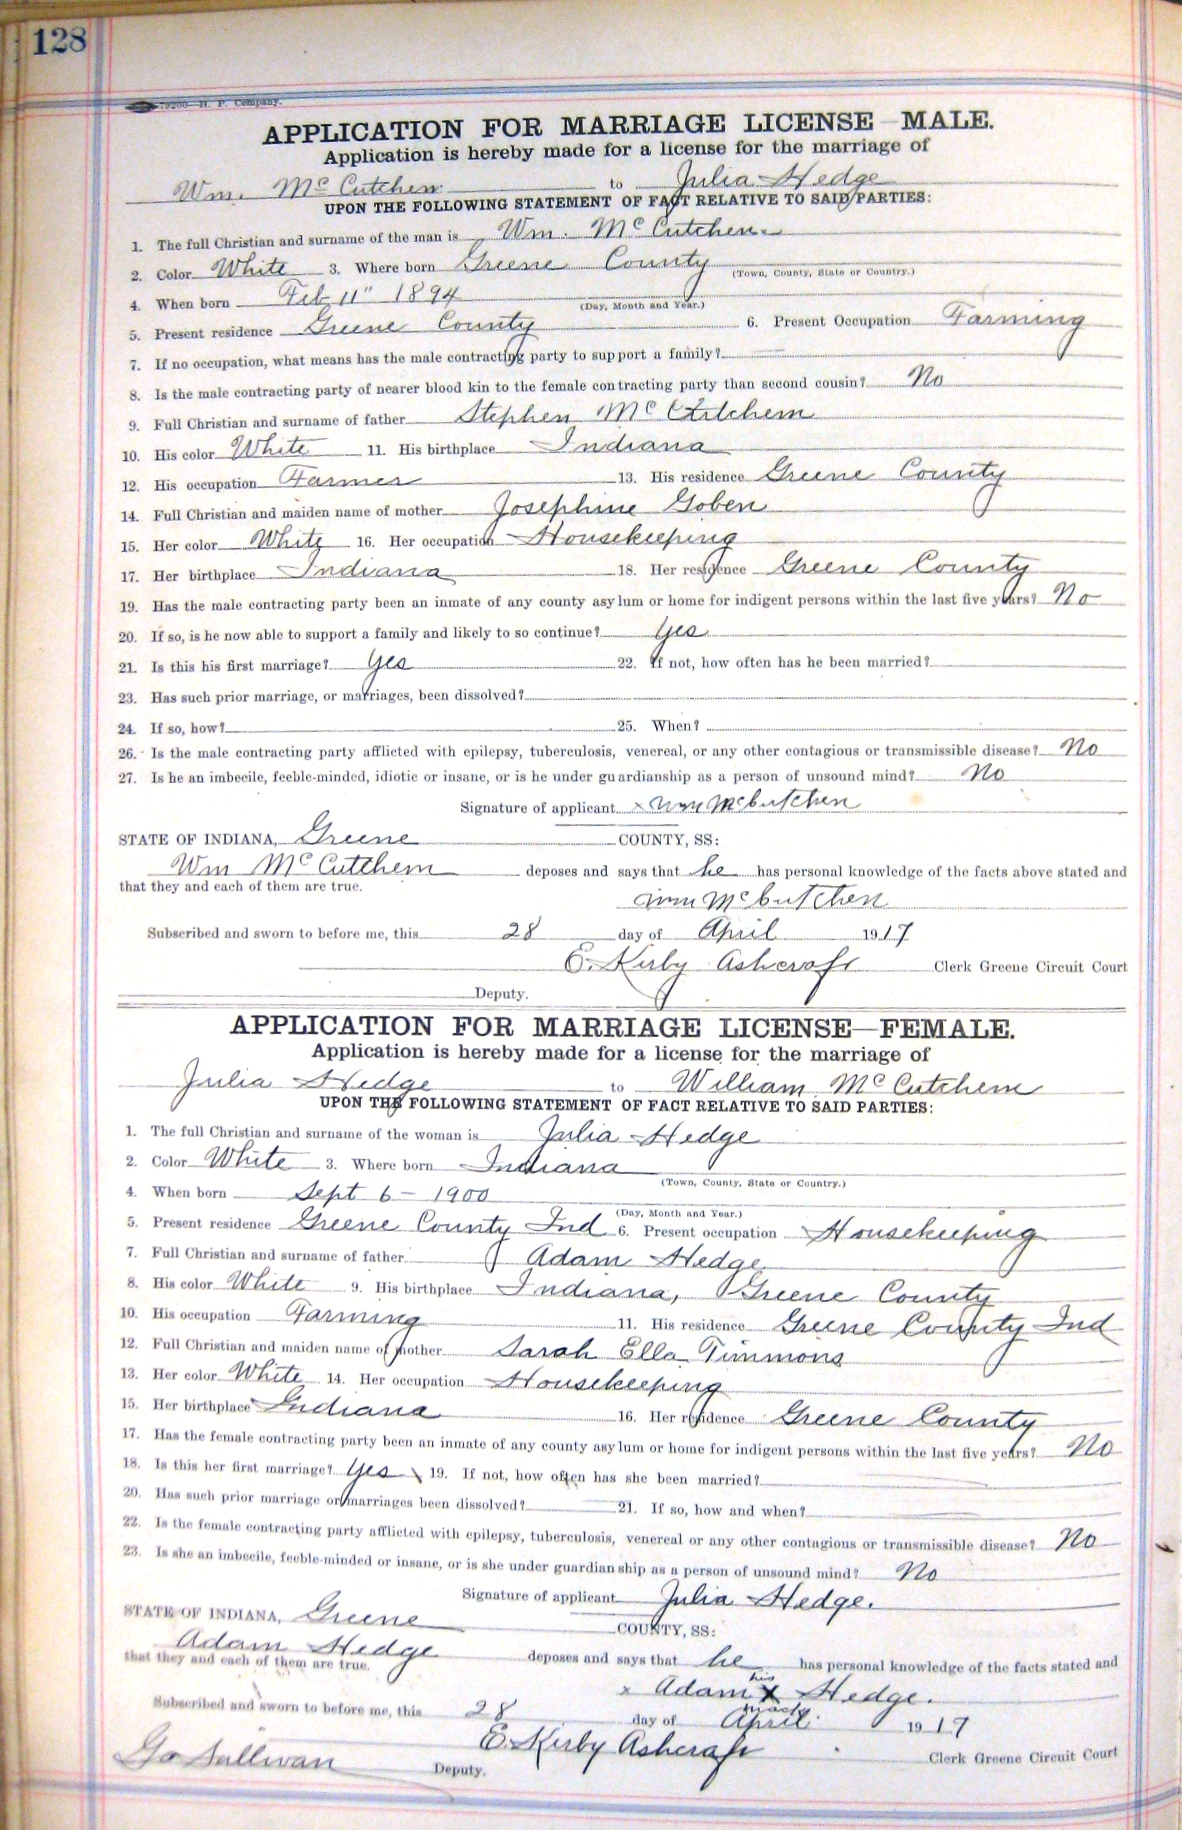 128
79200—H. P. Company.
APPLICATION FOR MARRIAGE LICENSE—MALE.
Application is hereby made for a license for the marriage of
Wm. McCutchen to Julia Hedge
UPON THE FOLLOWING STATEMENT OF FACT RELATIVE TO SAID PARTIES:
1. The full Christian and surname of the man is Wm. McCutchen.
2. Color White 3. Where born Greene County
(Town, County, State or Country.)
4. When born Feb 11" 1894
(Day, Month and Year.)
5. Present residence Greene County 6. Present Occupation Farming
7. If no occupation, what means has the male contracting party to support a family?
8. Is the male contracting party of nearer blood kin to the female contracting party than second cousin? No
9. Full Christian and surname of father Stephen McCutchem
10. His color White 11. His birthplace Indiana
12. His occupation Farmer 13. His residence Greene County
14. Full Christian and maiden name of mother Josephine Goben
15. Her color White 16. Her occupation Housekeeping
17. Her birthplace Indiana 18. Her residence Greene County
19. Has the male contracting party been an inmate of any county asylum or home for indigent persons within the last five years? No
20. If so, is he now able to support a family and likely to so continue? Yes
21. Is this his first marriage? Yes 22. If not, how often has he been married?
23. Has such prior marriage, or marriages, been dissolved?
24. If so, how? 25. When?
26. Is the male contracting party afflicted with epilepsy, tuberculosis, venereal, or any other contagious or transmissible disease? No
27. Is he an imbecile, feeble-minded, idiotic or insane, or is he under guardianship as a person of unsound mind? No
Signature of applicant x Wm McCutchen
STATE OF INDIANA, Greene COUNTY, SS:
Wm McCutchem deposes and says that he has personal knowledge of the facts above stated and
that they and each of them are true.
Wm McCutchen
Subscribed and sworn to before me, this 28 day of April 1917
E. Kirby Ashcraft Clerk Greene Circuit Court
Deputy.
APPLICATION FOR MARRIAGE LICENSE—FEMALE.
Application is hereby made for a license for the marriage of
Julia Hedge to William McCutchem
UPON THE FOLLOWING STATEMENT OF FACT RELATIVE TO SAID PARTIES:
1. The full Christian and surname of the woman is Julia Hedge
2. Color White 3. Where born Indiana
(Town, County, State or Country.)
4. When born Sept 6 - 1900
(Day, Month and Year.)
5. Present residence Greene County Ind 6. Present occupation Housekeeping
7. Full Christian and surname of father Adam Hedge
8. His color White 9. His birthplace Indiana, Greene County
10. His occupation Farming 11. His residence Greene County Ind
12. Full Christian and maiden name of mother Sarah Ella Timmons
13. Her color White 14. Her occupation Housekeeping
15. Her birthplace Indiana 16. Her residence Greene County
17. Has the female contracting party been an inmate of any county asylum or home for indigent persons within the last five years? No
18. Is this her first marriage? Yes 19. If not, how often has she been married?
20. Has such prior marriage or marriages been dissolved? 21. If so, how and when?
22. Is the female contracting party afflicted with epilepsy, tuberculosis, venereal or any other contagious or transmissible disease? No
23. Is she an imbecile, feeble-minded or insane, or is she under guardianship as a person of unsound mind? No
Signature of applicant Julia Hedge.
STATE OF INDIANA, Greene COUNTY, SS:
Adam Hedge deposes and says that he has personal knowledge of the facts stated and
that they and each of them are true.
his
x Adam X Hedge.
mark
Subscribed and sworn to before me, this 28 day of April 1917
E. Kirby Ashcraft Clerk Greene Circuit Court
Go Sullivan Deputy.